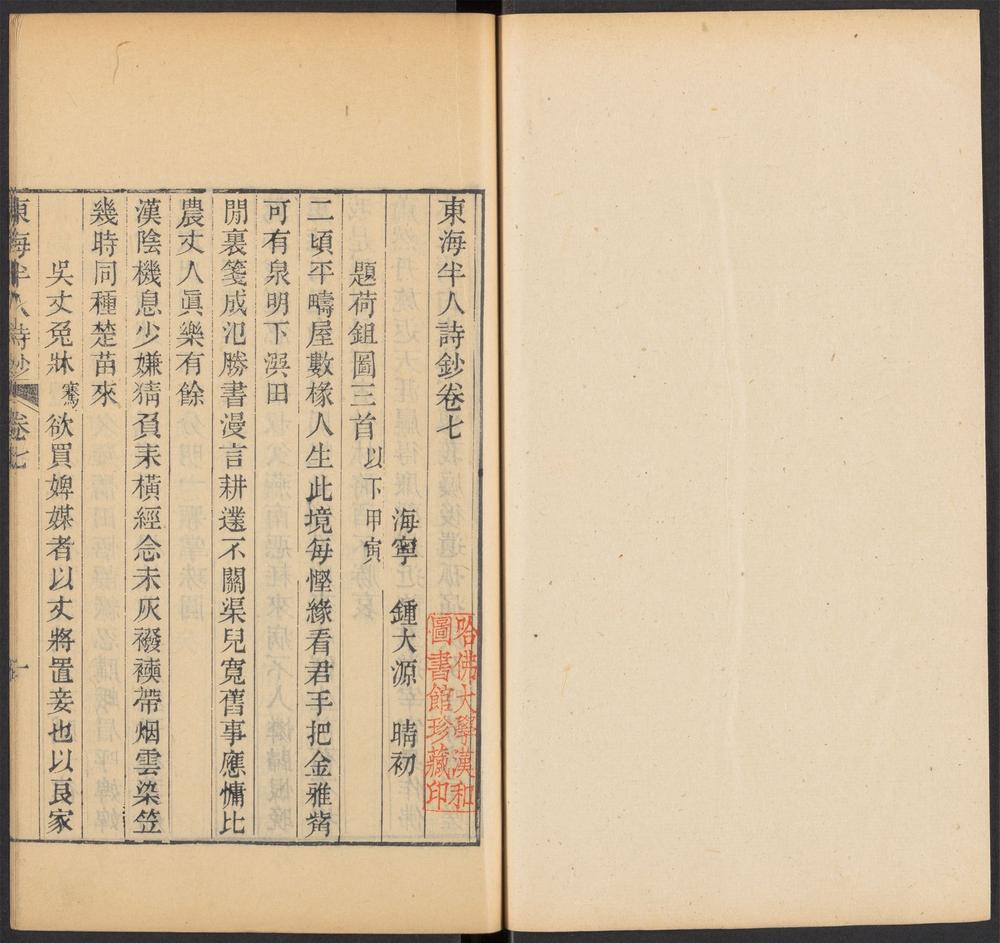 東海半人詩鈔卷七
海寧 鍾大源 晴初
題荷鉏圖三首 以下甲寅
二頃平疇屋數椽人生此境每慳緣看君手把金雅觜
可有泉明下潠田
閒裏箋成氾勝書漫言耕遝不關渠兒寬舊事應慵比
農丈人眞樂有餘
漢陰機息少嫌猜負耒橫經念未灰襏襫帶烟雲染笠
幾時同種楚苗來
吳丈兔牀騫欲買婢媒者以丈將置妾也以良家
東海半人詩鈔 卷七 一
哈佛大學漢和
圖書館珍藏印